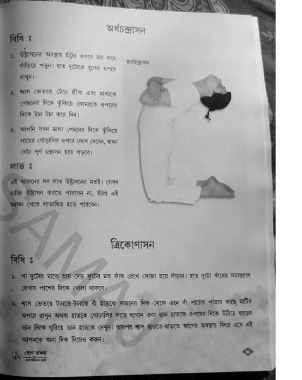 অর্ধচন্দ্রাসন
বিধি :
১. উষ্ট্রাসনের অবস্থায় হাঁটুর ওপরে ভর করে
দাঁড়িয়ে পড়ুন। হাত দুটোকে বুকের ওপরে
রাখুন।
অর্ধচন্দ্রাসন
২. শ্বাস ভেতরে টেনে গ্রীবা এবং মাথাকে
পেছনের দিকে ঝুঁকিয়ে কোমরকে ওপরের
দিকে টান টান করে দিন।
৩. আপনি যখন মাথা পেছনের দিকে ঝুঁকিয়ে
পায়ের গোড়ালির ওপরে রেখে দেবেন, তখন
সেটা পূর্ণ চন্দ্রাসন হয়ে পড়বে।
লাভ :
এই আসনের সব লাভ উষ্ট্রাসনের মতই। যেসব
ব্যক্তি উষ্ট্রাসন করতে পারবেন না, তাঁরা এই
আসন থেকে লাভান্বিত হতে পারবেন।
ত্রিকোণাসন
বিধি :
১. পা দুটোর মাঝে প্রায় দেড় ফুটের মত ফাঁক রেখে সোজা হয়ে দাঁড়ান। হাত দুটো কাঁধের সমান্তরাল
রেখায় পাশের দিকে খোলা থাকবে।
২. শ্বাস ভেতরে টানতে-টানতে বাঁ হাতকে সামনের দিক থেকে এনে বাঁ পায়ের পাতার কাছে মাটির
ওপরে রাখুন অথবা হাতকে গোড়ালির কাছে লাগান এবং ডান হাতকে ওপরের দিকে উঠিয়ে ঘাড়কে
ডান দিকে ঘুরিয়ে ডান হাতকে দেখুন। তারপর শ্বাস ছাড়তে-ছাড়তে আগের অবস্থায় ফিরে এসে এই
আসনকে অন্য দিক দিয়েও করুন।
যোগ সাধনা